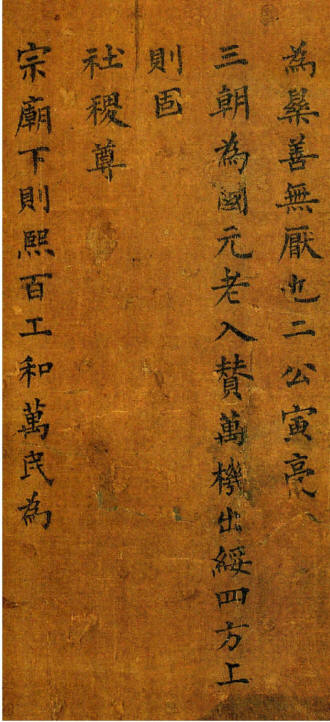 為樂善無厭也二公寅亮
三朝為國元老入賛萬機出綏四方上
則固
社稷尊
宗廟下則熙百工和萬民為